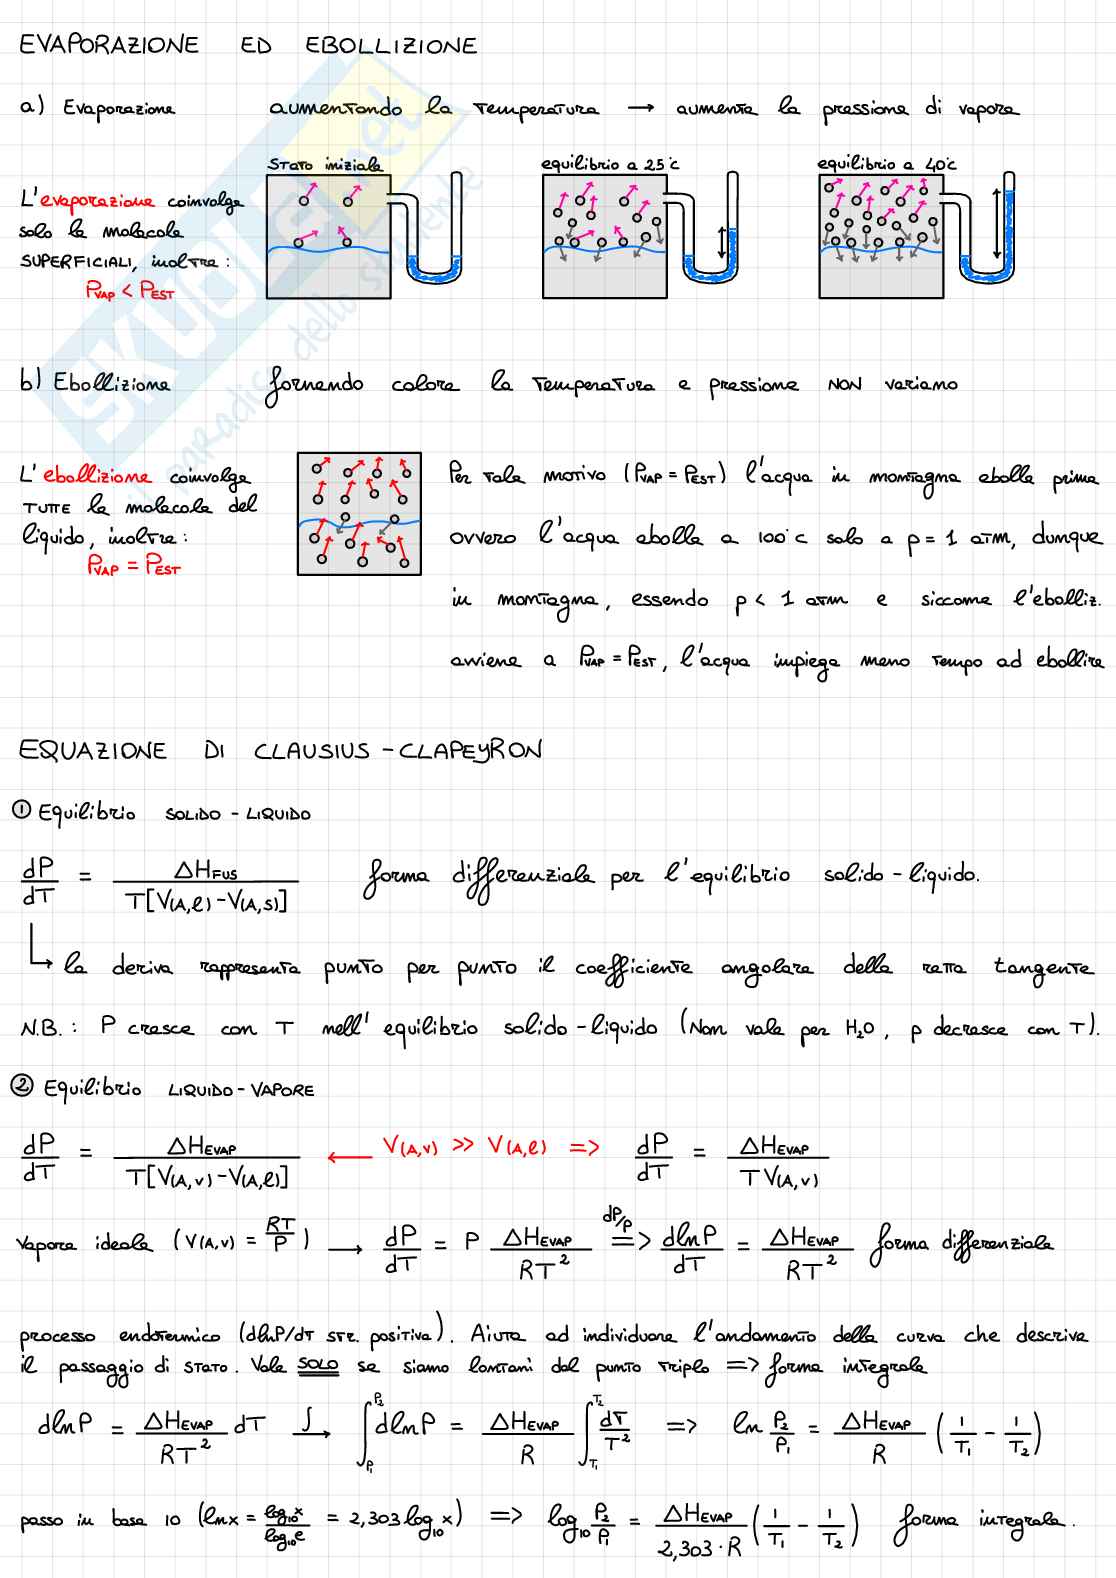 EVAPORAZIONE ED EBOLLIZIONE
a) Evaporazione aumentando la temperatura → aumenta la pressione di vapore
stato iniziale equilibrio a 25°c equilibrio a 40°c
L'evaporazione coinvolge
solo le molecole
SUPERFICIALI, inoltre :
PVAP < PEST
b) Ebollizione fornendo calore la temperatura e pressione NON variano
L'ebollizione coinvolge
TUTTE le molecole del
liquido, inoltre :
PVAP = PEST
Per tale motivo (PVAP = PEST) l'acqua in montagna ebolle prima
ovvero l'acqua ebolle a 100°c solo a p = 1 atm, dunque
in montagna, essendo p < 1 atm e siccome l'eboliz.
avviene a PVAP = PEST, l'acqua impiega meno tempo ad ebollire
EQUAZIONE DI CLAUSIUS - CLAPEYRON
① Equilibrio SOLIDO - LIQUIDO
dP/dT = ΔHFUS / T[V(A,l) - V(A,s)] forma differenziale per l'equilibrio solido - liquido.
↳ la deriva rappresenta punto per punto il coefficiente angolare della retta tangente
N.B. : P cresce con T nell' equilibrio solido - liquido (Non vale per H₂O, p decresce con T).
② Equilibrio LIQUIDO - VAPORE
dP/dT = ΔHEVAP / T[V(A,v) - V(A,l)] ← V(A,v) >> V(A,l) => dP/dT = ΔHEVAP / T V(A,v)
Vapore ideale (V(A,v) = RT/P) → dP/dT = P ΔHEVAP / RT² =dP/P=> dlnP/dT = ΔHEVAP / RT² forma differenziale
processo endotermico (dlnP/dT str. positiva). Aiuta ad individuare l'andamento della curva che descrive
il passaggio di stato. Vale SOLO se siamo lontani dal punto triplo => forma integrale
dlnP = ΔHEVAP / RT² dT ∫→ ∫P₁P₂ dlnP = ΔHEVAP / R ∫T₁T₂ dT/T² => ln P₂/P₁ = ΔHEVAP / R (1/T₁ - 1/T₂)
passo in base 10 (lnx = log₁₀x / log₁₀e = 2,303 log₁₀x) => log₁₀ P₂/P₁ = ΔHEVAP / 2,303 · R (1/T₁ - 1/T₂) forma integrale.
SKUOLA.net
il paradiso dello studente